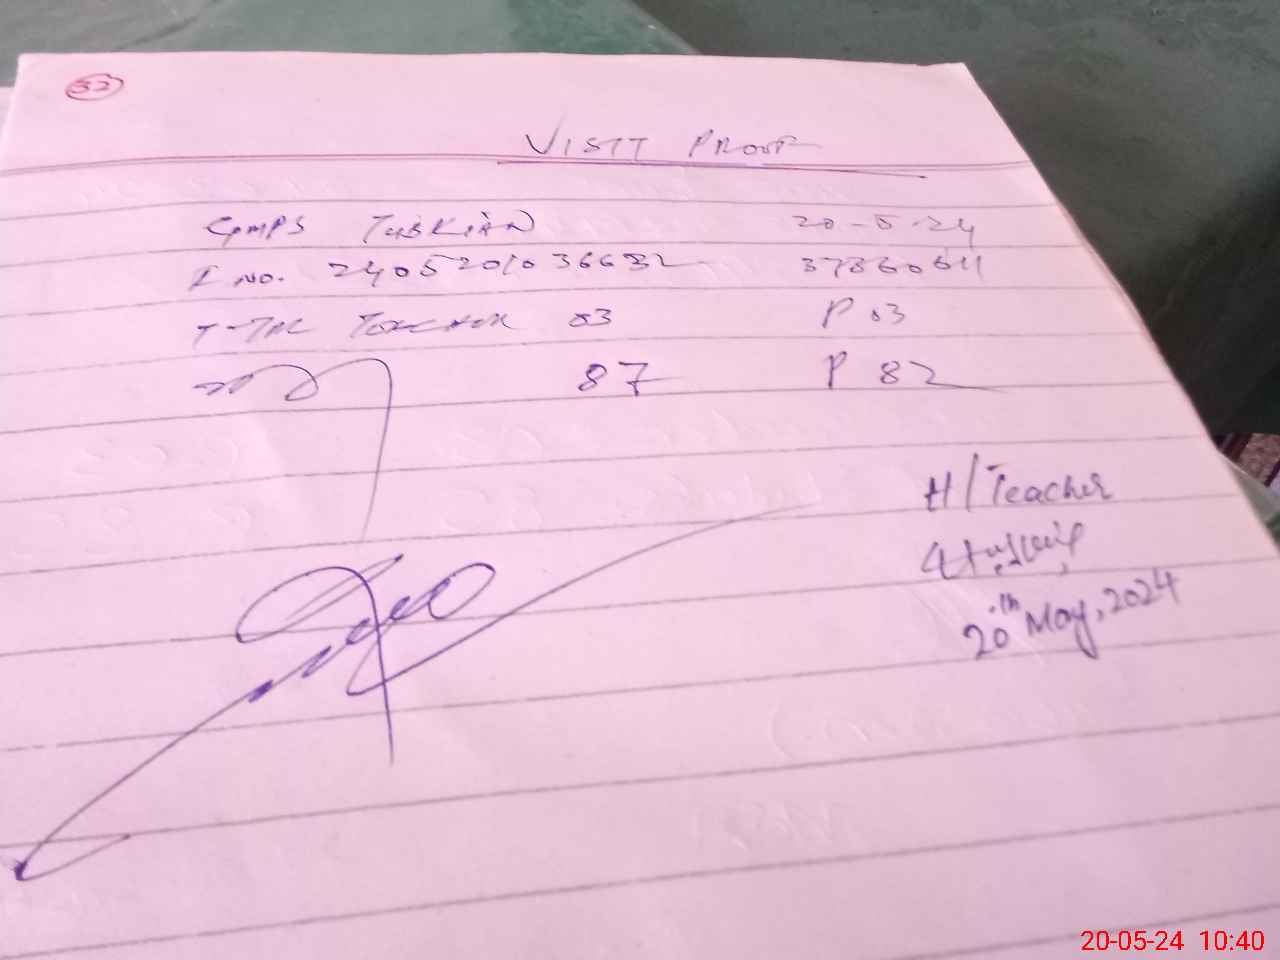 32
VISIT PROOF
GMPS TUBKIAN 20-5-24
I NO. 24052010 36632 37860611
T-TAL TEACHER 03 P 03
87 P 82
H/Teacher
20th May, 2024
20-05-24 10:40